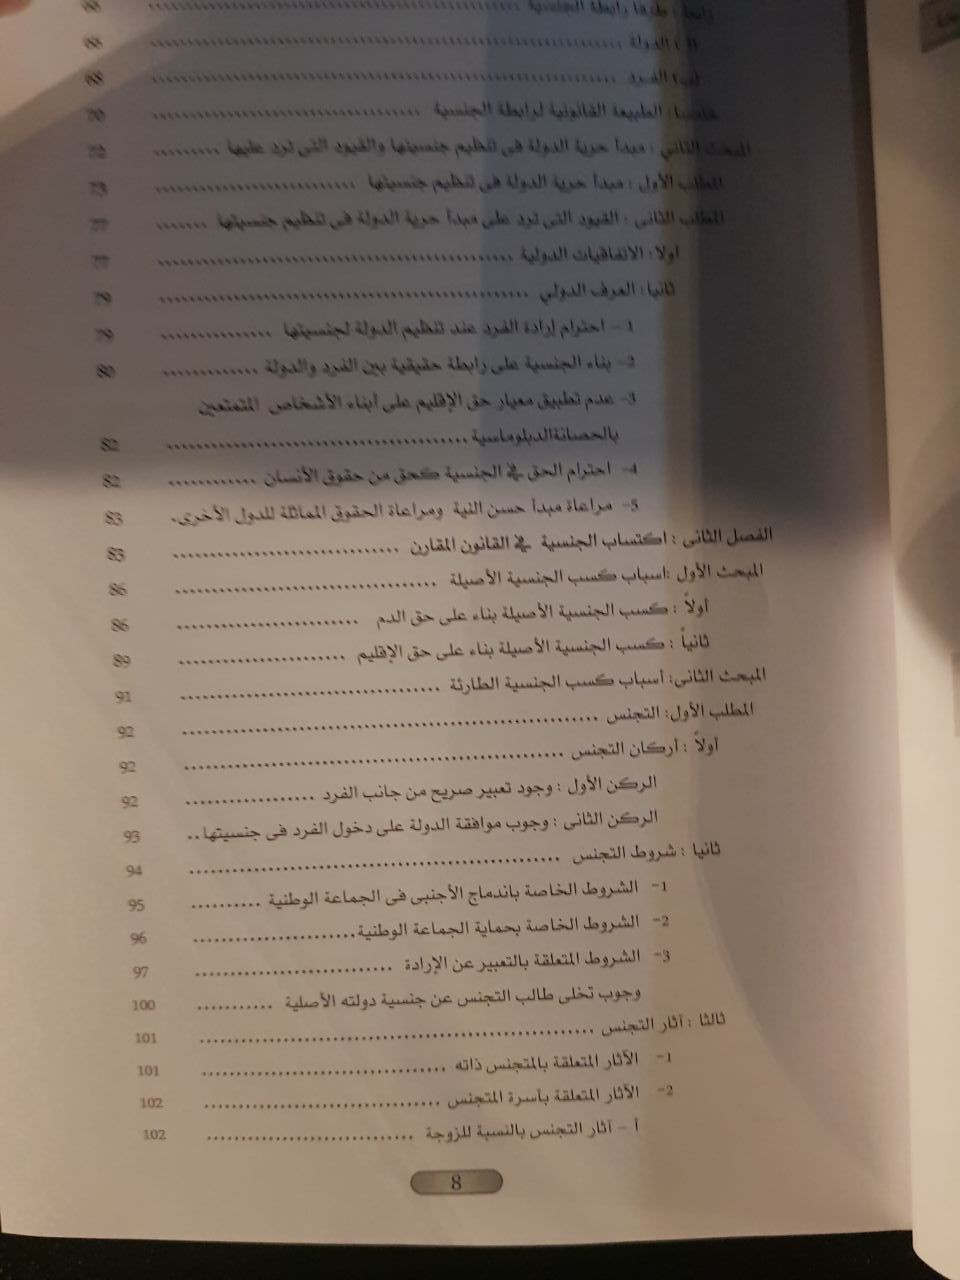 رابعا : طرفا رابطة الجنسية ........ 66
(أ) الدولة ........ 66
(ب) الفرد ........ 68
خامسا : الطبيعة القانونية لرابطة الجنسية ........ 70
المبحث الثاني : مبدأ حرية الدولة فى تنظيم جنسيتها والقيود التى ترد عليها ........ 72
المطلب الأول : مبدأ حرية الدولة فى تنظيم جنسيتها ........ 73
المطلب الثانى : القيود التى ترد على مبدأ حرية الدولة فى تنظيم جنسيتها ....... 77
اولا : الاتفاقيات الدولية ........ 77
ثانيا : العرف الدولي ........ 79
1 - احترام إرادة الفرد عند تنظيم الدولة لجنسيتها ........ 79
2- بناء الجنسية على رابطة حقيقية بين الفرد والدولة ........ 80
3- عدم تطبيق معيار حق الإقليم على أبناء الأشخاص المتمتعين
بالحصانةالدبلوماسية ........ 82
4- احترام الحق في الجنسية كحق من حقوق الأنسان ........ 82
5- مراعاة مبدأ حسن النية ومراعاة الحقوق المماثلة للدول الأخرى. 83
الفصل الثانى : اكتساب الجنسية في القانون المقارن ........ 83
المبحث الأول :اسباب كسب الجنسية الأصيلة ........ 86
أولاً : كسب الجنسية الأصيلة بناء على حق الدم ........ 86
ثانياً : كسب الجنسية الأصيلة بناء على حق الإقليم ........ 89
المبحث الثانى: أسباب كسب الجنسية الطارئة ........ 91
المطلب الأول: التجنس ........ 92
أولاً : أركان التجنس ........ 92
الركن الأول : وجود تعبير صريح من جانب الفرد ........ 92
الركن الثانى : وجوب موافقة الدولة على دخول الفرد فى جنسيتها .. 93
ثانيا : شروط التجنس ........ 94
1- الشروط الخاصة باندماج الأجنبى فى الجماعة الوطنية ........ 95
2- الشروط الخاصة بحماية الجماعة الوطنية ........ 96
3- الشروط المتعلقة بالتعبير عن الإرادة ........ 97
وجوب تخلى طالب التجنس عن جنسية دولته الأصلية ........ 100
ثالثا : آثار التجنس ........ 101
1- الآثار المتعلقة بالمتجنس ذاته ........ 101
2- الآثار المتعلقة بأسرة المتجنس ........ 102
أ - آثار التجنس بالنسبة للزوجة ........ 102
8